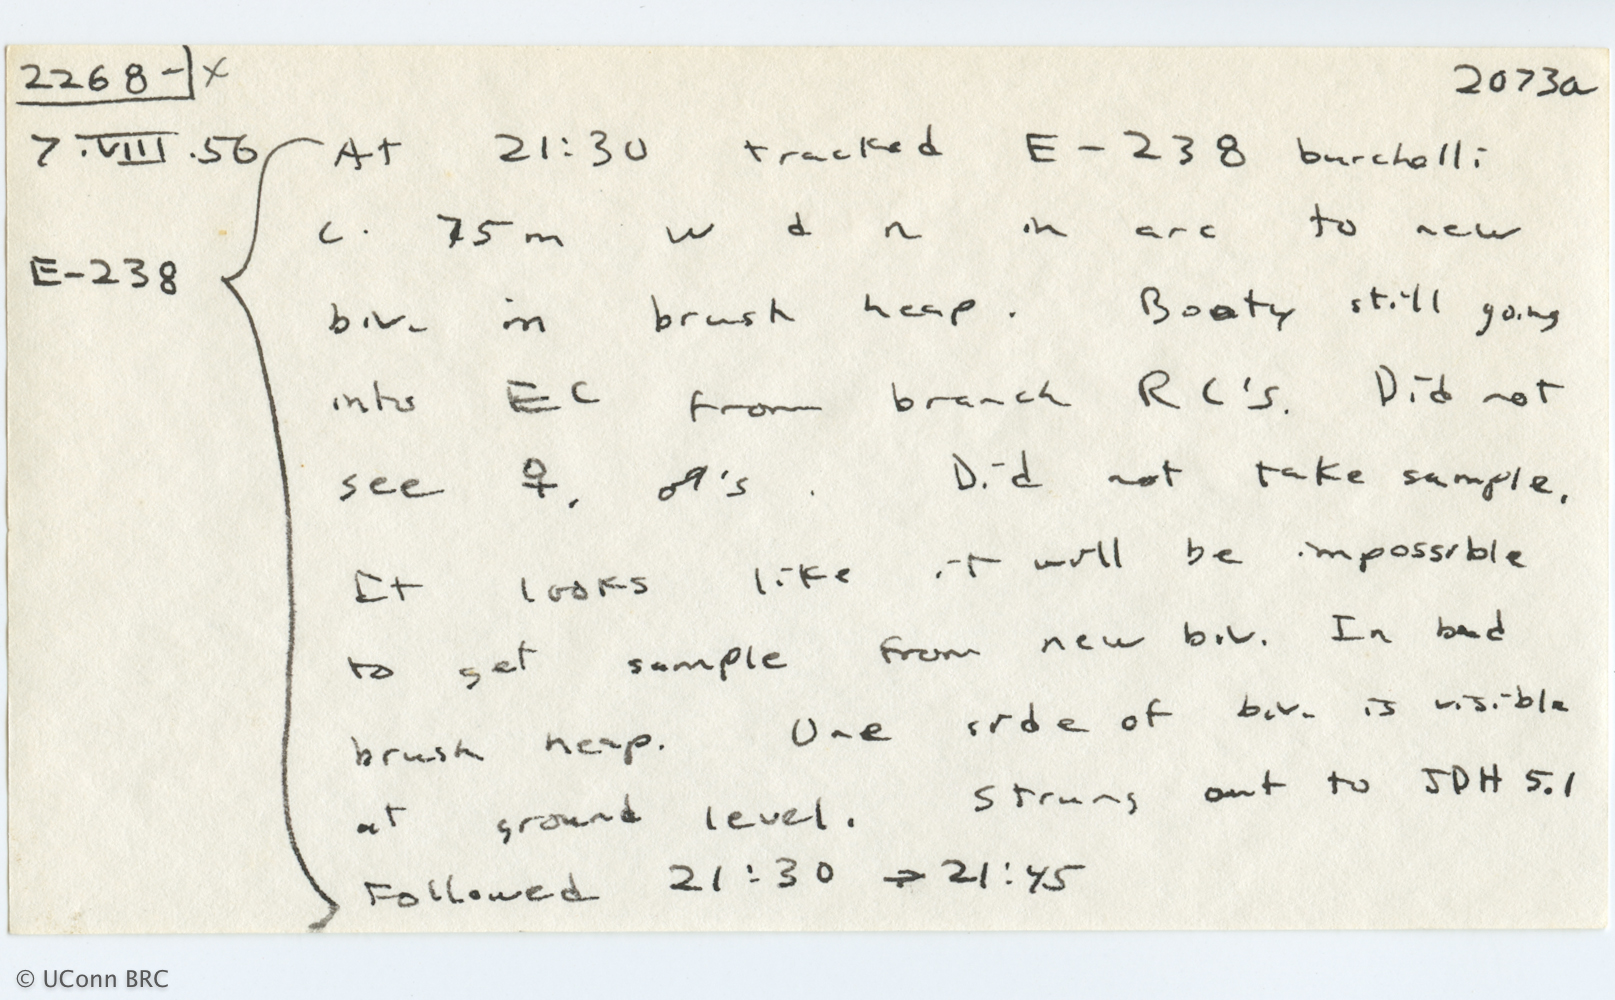 2268-X 2073a
7.VIII.56 At 21:30 tracked E-238 burchelli
c. 75m w d n in arc to new
E-238
biv. in brush heap. Booty still going
into EC from branch RC's. Did not
see ♀, ♂'s. Did not take sample.
It looks like it will be impossible
to get sample from new biv. In bad
brush heap. One side of biv. is visible
at ground level. Strung out to JDH 5.1
Followed 21:30 → 21:45
© UConn BRC